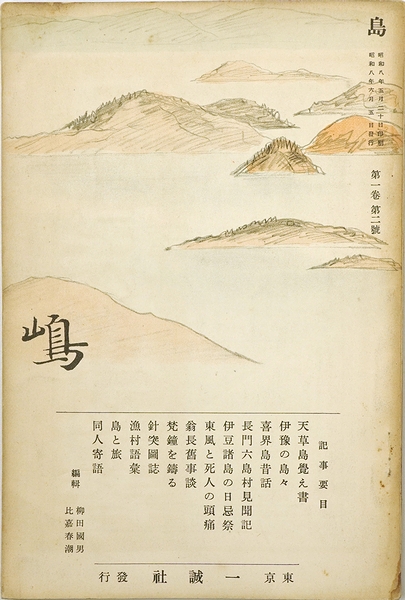 島
昭和八年五月二十日印刷
昭和八年六月五日發行
第一卷第二號
嶋
記事要目
天草島覺え書
伊豫の島々
喜界島昔話
長門六島村見聞記
伊豆諸島の日忌祭
東風と死人の頭痛
翁長舊事談
梵鐘を鑄る
針突圖誌
漁村語彙
島と旅
同人寄語
編輯
柳田國男
比嘉春潮
東京 一誠社 發行